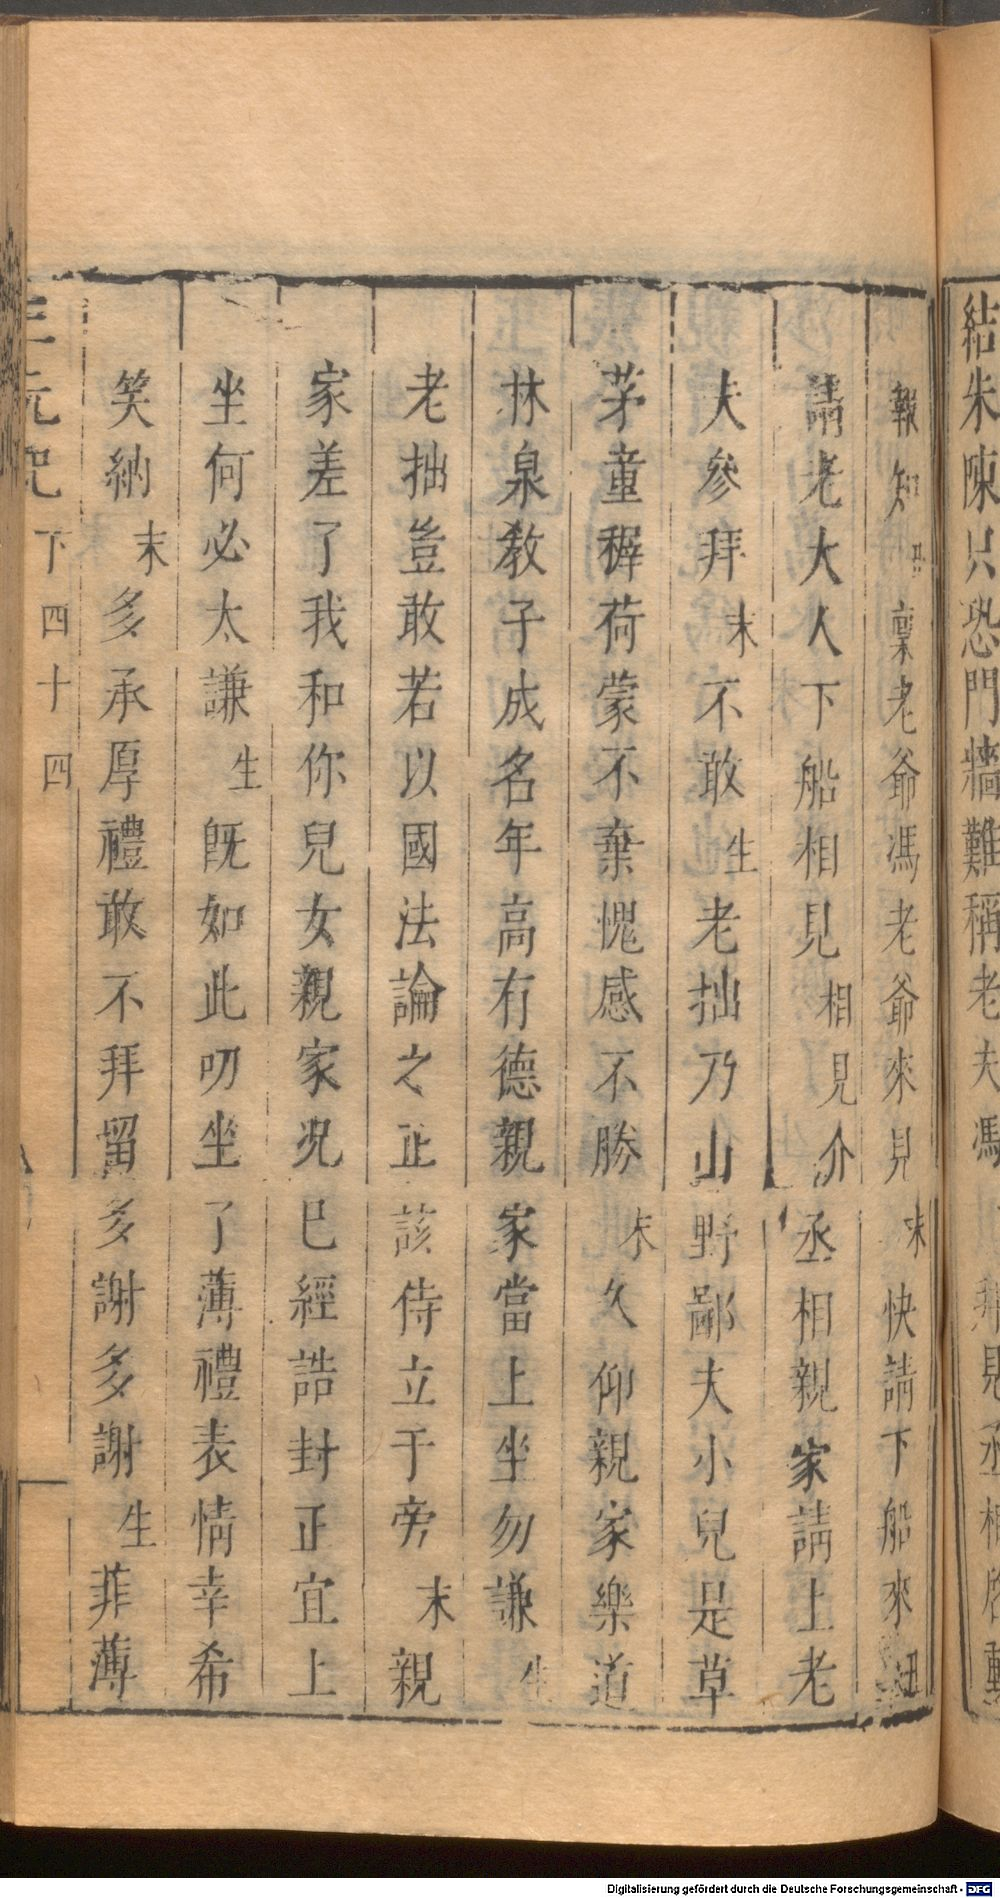 結朱陳只恐門牆難稱老夫馮
見丞相
報知丑稟老爺馮老爺來見末快請下船來丑
請老大人下船相見相見介丞相親家請上老
夫參拜末不敢生老拙乃山野鄙夫小兒是草
茅童穉荷蒙不棄愧感不勝末久仰親家樂道
林泉教子成名年高有德親家當上坐勿謙生
老拙豈敢若以國法論之正該侍立于旁末親
家差了我和你兒女親家况已經誥封正宜上
坐何必太謙生旣如此叨坐了薄禮表情幸希
笑納末多承厚禮敢不拜留多謝多謝生菲薄
三元記 下 四十四
Digitalisierung gefördert durch die Deutsche Forschungsgemeinschaft - DFG